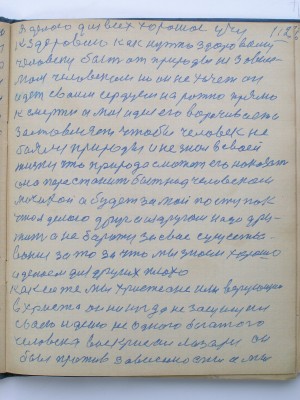 я делаю для всех хорошее учу 112
к здоровью как нужно здоровому
человеку быть от природы не зависи-
мым человеком но он не хочет он
идет своим сердцем на рожно прямо
к смерти а мои идеи его ворочивают
заставляют чтобы человек не
боялся природы и не знал в своей
жизни что природа сможет его наказать
она перестанет быть над человеком
а будет за мой поступок
что я делаю друг а с другом надо дру-
жить а не бороться за свое существо-
вание за то за что мы знаем хорошо
и делаем для других плохо
какие же мы христиане или верующие
в Христа он никогда не защищал
свою идею не одного богатого
человека воскресил Лазаря он
был против зависимости а мы